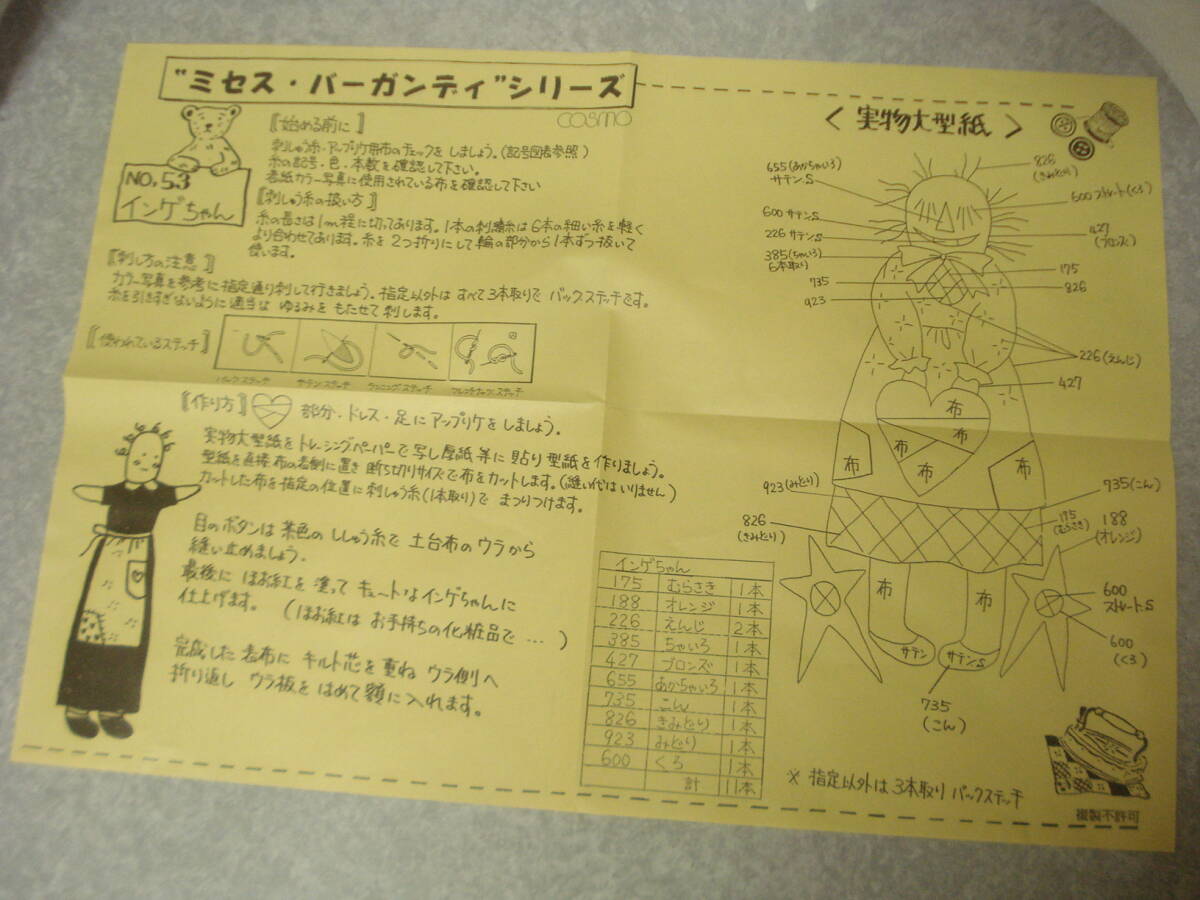 "ミセス・バーガンディ"シリーズ
COSMO
NO,53
インゲちゃん
〚始める前に〛
刺しゅう糸・アップリケ用布のチェックを しましょう。(記号図表参照)
糸の記号・色・本数を確認して下さい。
表紙カラー写真に使用されている布を確認して下さい
〚刺しゅう糸の扱い方〛
糸の長さは1m程に切ってあります。1本の刺繍糸は6本の細い糸を軽く
より合わせてあります。糸を2つ折りにして輪の部分から1本ずつ抜いて
使います。
〚刺し方の注意〛
カラー写真を参考に指定通り刺して行きましょう。指定以外はすべて3本取りで バックステッチです。
糸を引きすぎないように適当な ゆるみを もたせて刺します。
〚使われているステッチ〛
バックステッチ サテンステッチ ランニングステッチ フレンチナッツ・ステッチ
〚作り方〛 部分・ドレス・足に アップリケを しましょう。
実物大型紙をトレーシングペーパーで写し厚紙等に貼り型紙を作りましょう。
型紙を直接布の表側に置き 断ち切りサイズで布をカットします。(縫い代はいりません)
カットした布を指定の位置に刺しゅう糸(1本取り)で まつりつけます。
目のボタンは茶色の ししゅう糸で 土台布のウラから
縫い止めましょう。
最後に ほお紅を 塗って キュートなインゲちゃんに
仕上げます。 (ほお紅は お手持ちの化粧品で … )
完成した表布に キルト芯を重ね ウラ側へ
折り返し ウラ板を はめて額に入れます。
インゲちゃん
175 むらさき 1本
188 オレンジ 1本
226 えんじ 2本
385 ちゃいろ 1本
427 ブロンズ 1本
655 あかちゃいろ 1本
735 こん 1本
826 きみどり 1本
923 みどり 1本
600 くろ 1本
計 11本
〈 実物大型紙 〉
655(あかちゃいろ)
サテン.S
600 サテン.S
226 サテン.S
385(ちゃいろ)
6本取り
735
923
826
(きみどり)
600 ストレート(くろ)
427
(ブロンズ)
175
826
226(えんじ)
427
布
布
布
布
布
布
923(みどり)
826
(きみどり)
735(こん)
175
(むらさき)
188
(オレンジ)
布
布
600
ストレート.S
600
(くろ)
サテン
サテンS
735
(こん)
※ 指定以外は3本取り バックステッチ
複製不許可